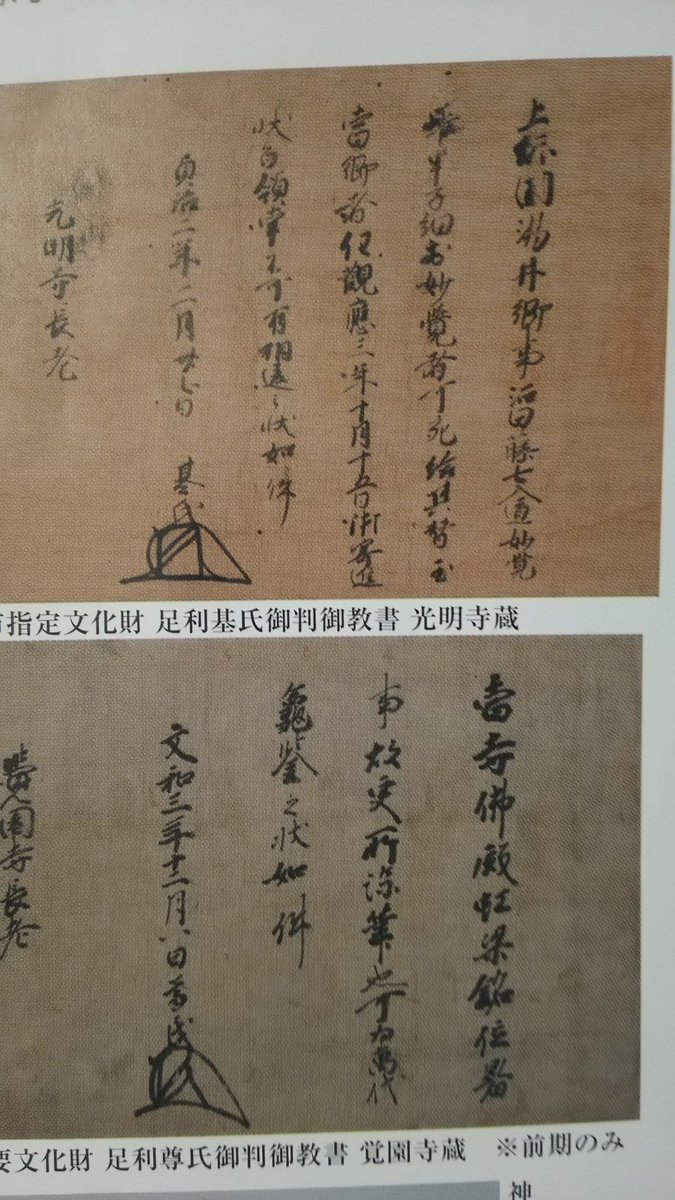 上総国湯井郷事湛田藤七入道妙覚
雖申子細出妙覚者可死給其替至
当郷者任観應三年十月十五日御寄進
状為領掌不可有相違之状如件
貞治二年二月廿七日 基氏
光明寺長老
市指定文化財 足利基氏御判御教書 光明寺蔵
當寺佛殿虹梁銘位署
事故更所染筆也可為萬代
龜鑒之状如件
文和三年十二月八日 尊氏
覺園寺長老
要文化財 足利尊氏御判御教書 覚園寺蔵 ※前期のみ
神